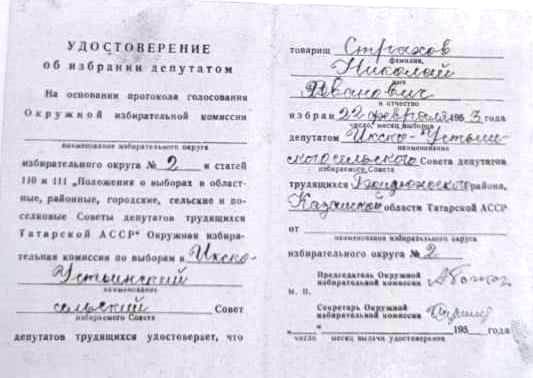 УДОСТОВЕРЕНИЕ
об избрании депутатом
На основании протокола голосования
Окружной избирательной комиссии
наименование избирательного округа
избирательного округа № 2 и статей
110 и 111 „Положения о выборах в област-
ные, районные, городские, сельские и по-
селковые Советы депутатов трудящихся
Татарской АССР“ Окружная избира-
тельная комиссия по выборам в Икско-
Устьинский
наименование
сельский Совет
избираемого Совета
депутатов трудящихся удостоверяет, что
товарищ Страхов
фамилия,
Николай
имя
Иванович
и отчество
избран 22 февраля 1953 года
число, месяц выборов
депутатом Икско-Устьин-
наименование
ского сельского Совета депутатов
избираемого Совета
трудящихся района,
Казанской области Татарской АССР
от
наименование избирательного округа
избирательного округа № 2
Председатель Окружной
избирательной комиссии
М. П.
Секретарь Окружной
избирательной комиссии
„ “ 195 года
число месяц выдачи удостоверения